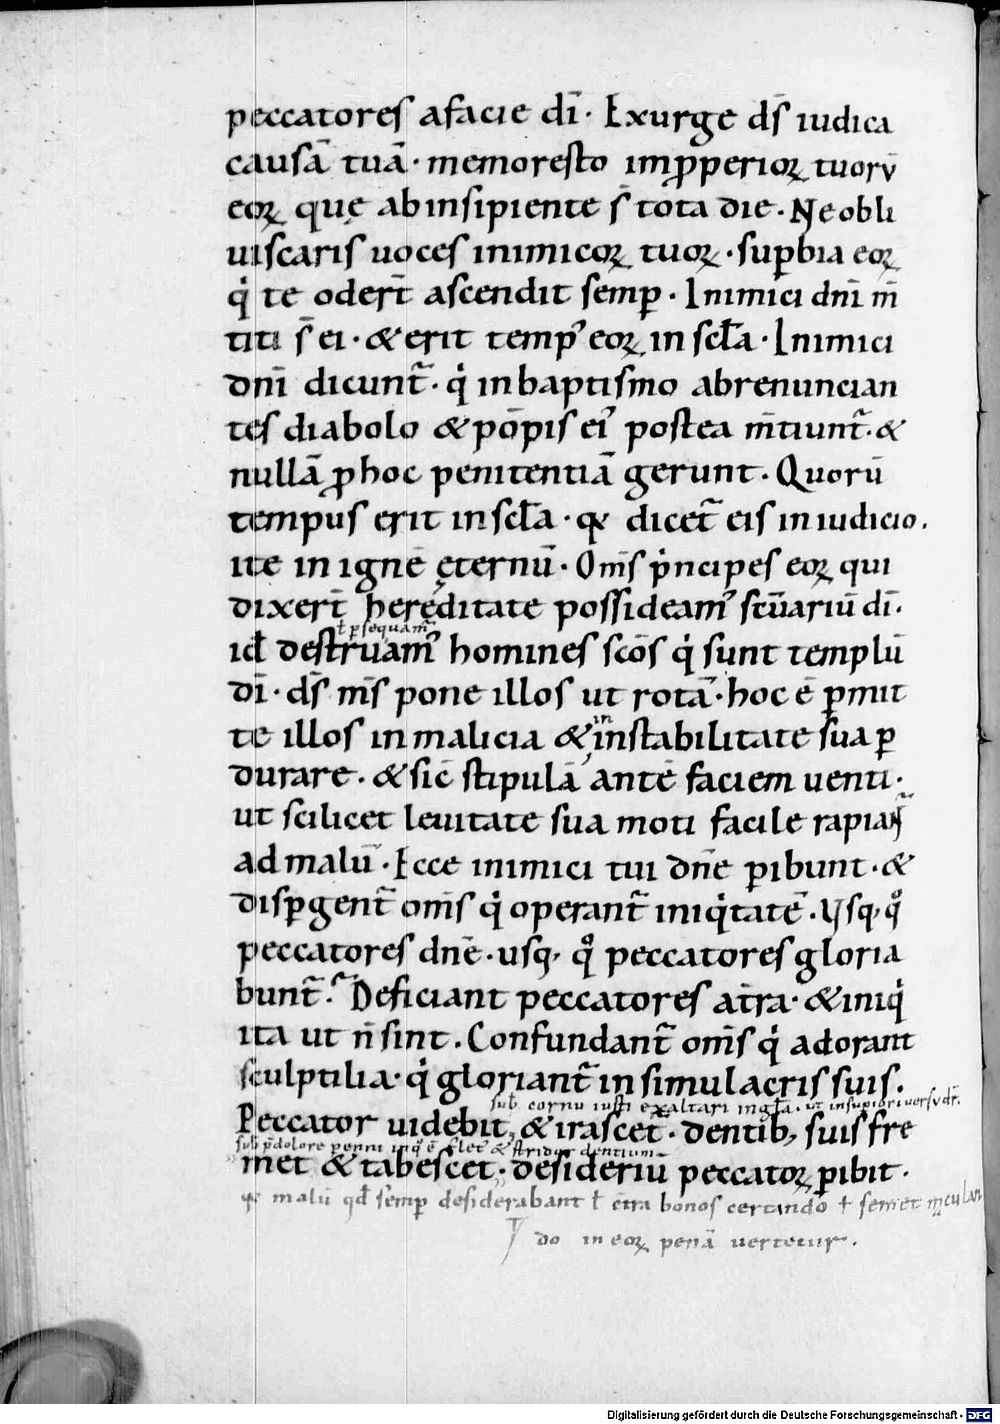 peccatores afacie dī. Exurge ds̄ iudica
causā tuā. memoresto imꝓperioꝝ tuorū
eoꝝ quę abinsipiente s̄ tota die. Ne obli
uiscaris uoces inimicoꝝ tuoꝝ. suꝑbia eoꝝ
q̇ te odert̄ ascendit semꝑ. Inimici dnī m̄
titi s̄ ei. & erit temp᾽ eoꝝ in scl̄a. Inimici
dnī dicunt᷑. q̇ inbaptismo abrenuncian
tes diabolo & pōpis ei᾽ postea m̄tiunt᷑. &
nullā ꝓhoc penitentiā gerunt. Quorū
tempus erit in scl̄a. qͥ dicet᷑ eis in iudicio.
ite in ignē ęternū. Om̄s p̓ncipes eoꝝ qui
dixert̄ heręditate possideam᾽ scūariū dī.
ł ꝑsequam᷑
id̄ destruam᾽ homines scōs q̇ sunt templū
dī. ds̄ m̄s pone illos ut rotā. hoc ē ꝑmit
te illos in malicia & in instabilitate sua ꝑ
durare. & sic̄ stipulā antē faciem uenti.
ut scilicet leuitate sua moti facile rapiant᷑
ad malū. Ecce inimici tui dnē ꝑibunt. &
disꝑgent᷑ om̄s q̇ operant᷑ iniq̇tatē. Vsq, qͦ
peccatores dnē. usq, qͦ peccatores gloria
bunt᷑. Deficiant peccatores at̄ra. & iniq̇
ita ut n̄ sint. Confundant᷑ om̄s q̇ adorant
sculptilia. q̇ gloriant᷑ in simulacris suis.
sub cornu iusti exaltari in gl̄a. ut in supiori uersu dr̄.
Peccator uidebit, & irascet᷑. dentib, suis fre
met & tabescet. desideriū peccatoꝝ ꝑibit.
malū qd̄ semꝑ desiderabant ł c̄tra bonos certando
do in eoꝝ penā uertetur.
Digitalisierung gefördert durch die Deutsche Forschungsgemeinschaft - DFG